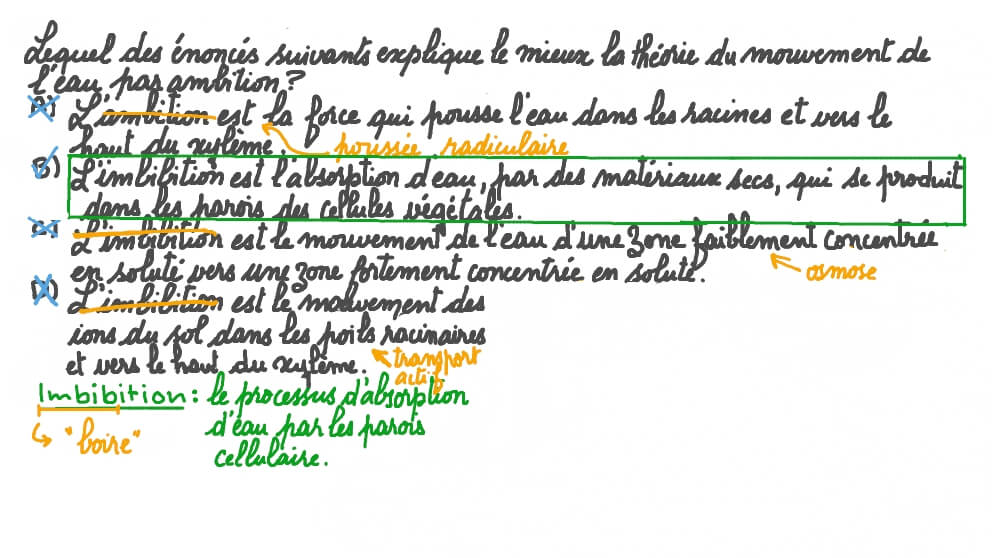 Lequel des énoncés suivants explique le mieux la théorie du mouvement de
l'eau par ambition?
A) L'imbibition est la force qui pousse l'eau dans les racines et vers le
haut du xylème. poussée radiculaire
B) L'imbibition est l'absorption d'eau, par des matériaux secs, qui se produit
dans les parois des cellules végétales.
C) L'imbibition est le mouvement de l'eau d'une zone faiblement concentrée
en soluté vers une zone fortement concentrée en soluté. osmose
D) L'imbibition est le mouvement des
ions du sol dans les poils racinaires
et vers le haut du xylème. transport
actif
Imbibition: le processus d'absorption
"boire" d'eau par les parois
cellulaire.